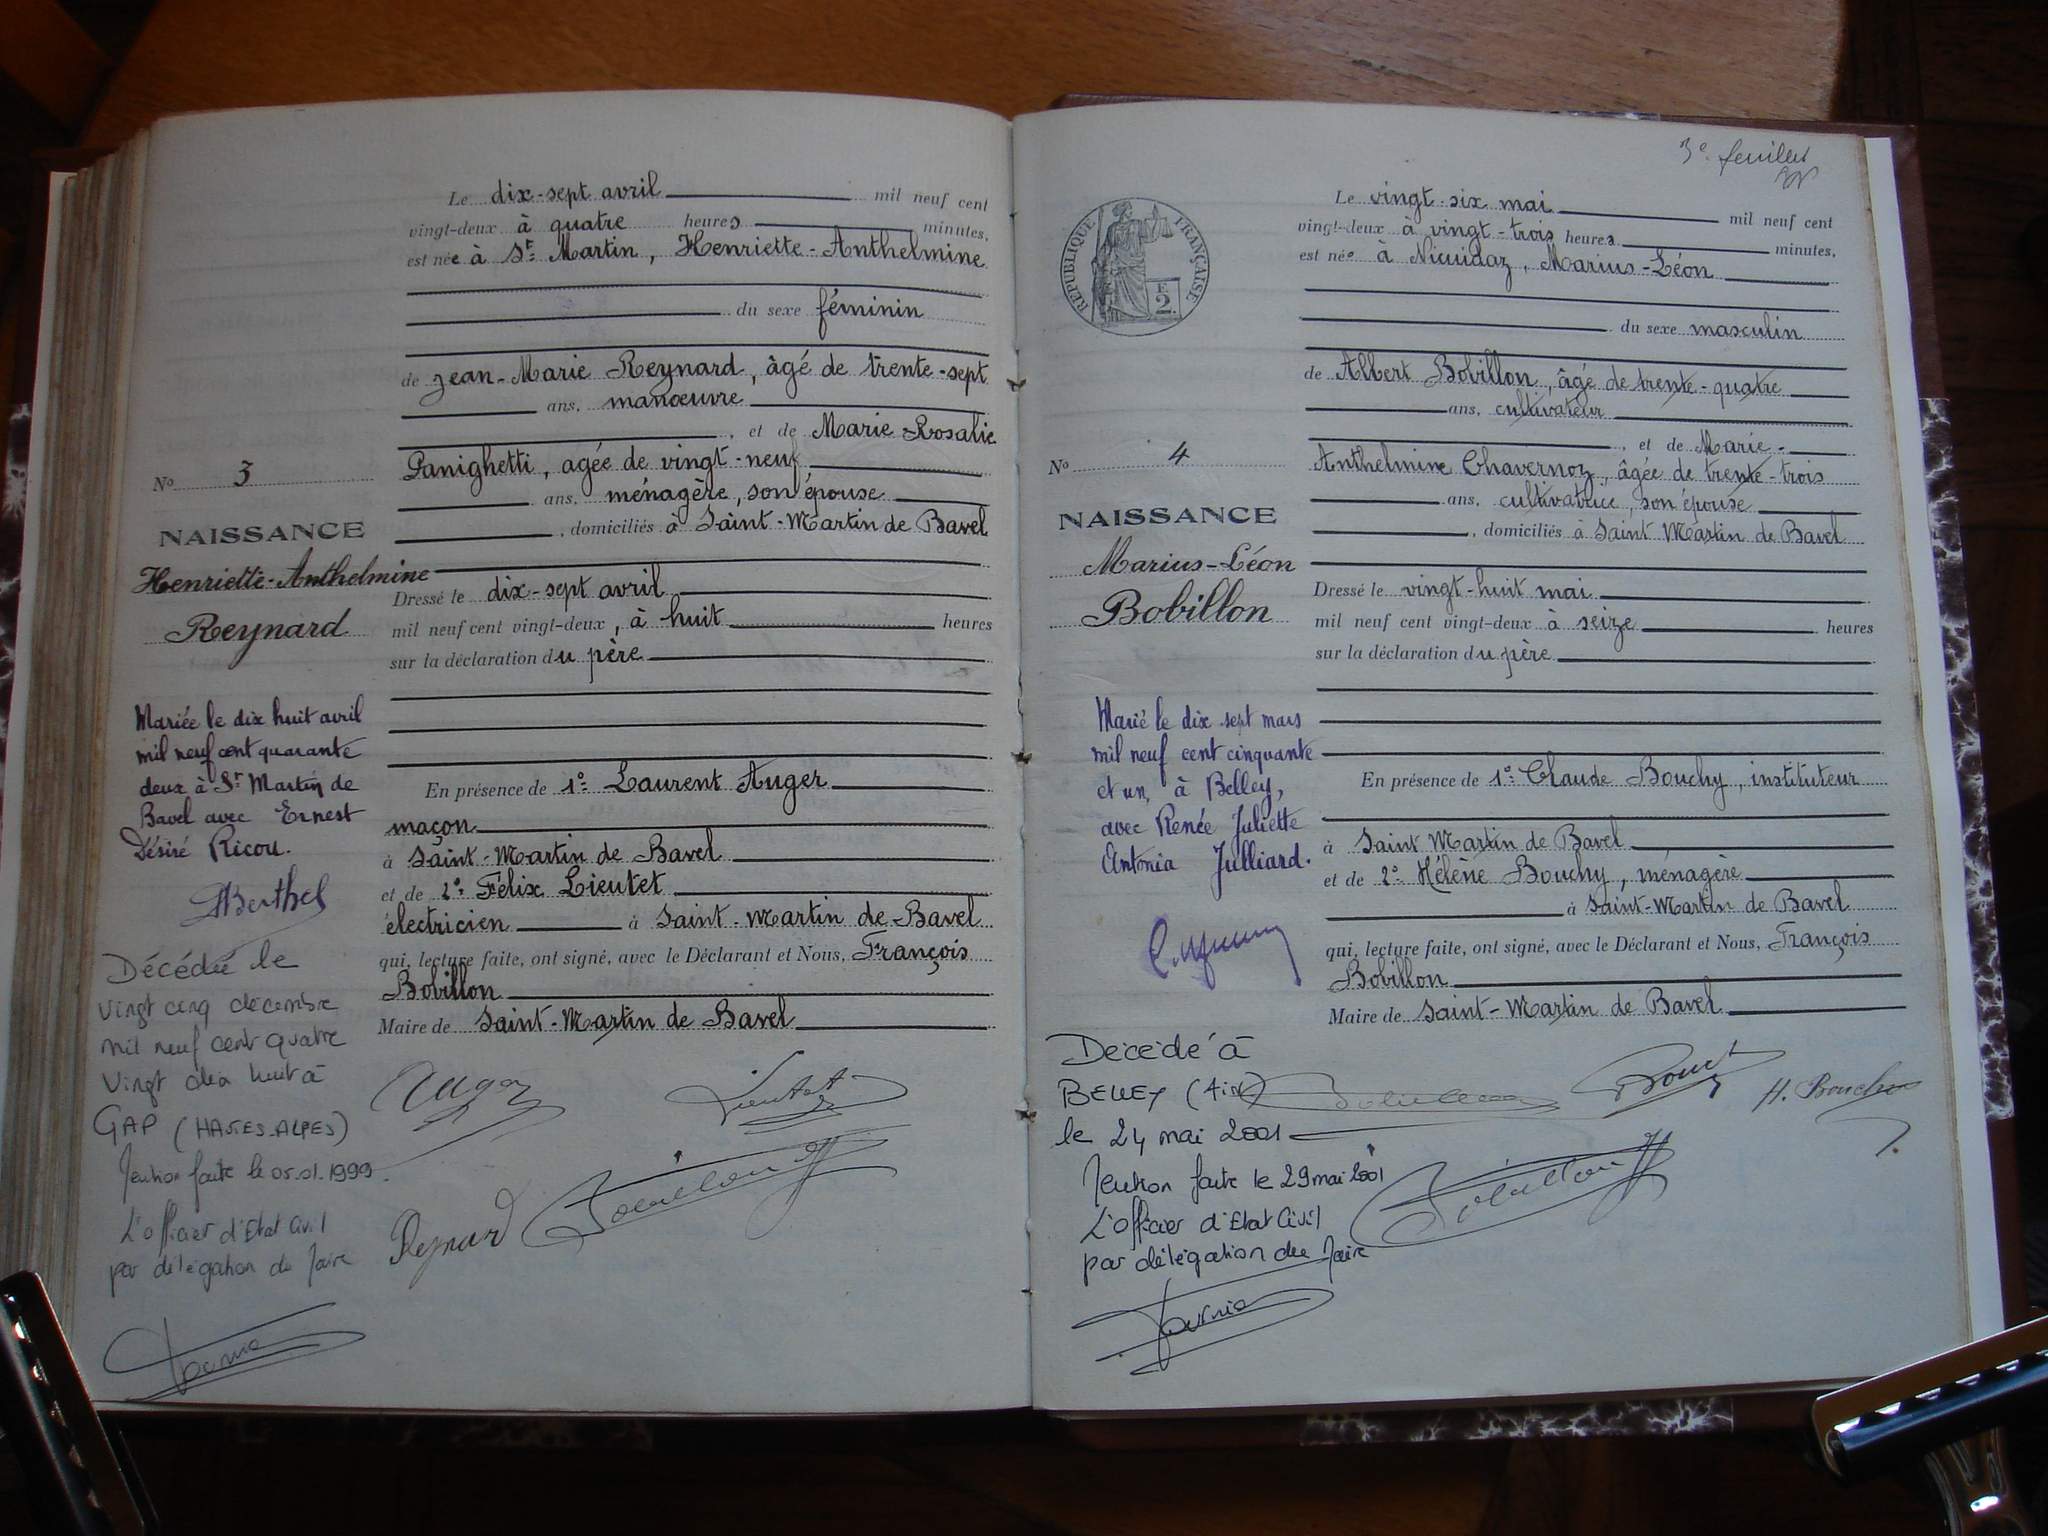 Le dix-sept avril mil neuf cent
vingt-deux à quatre heures minutes,
est née à St Martin, Henriette-Anthelmine
du sexe féminin
de Jean-Marie Reynard, âgé de trente-sept
ans, manœuvre
, et de Marie-Rosalie
Panighetti, agée de vingt-neuf
ans, ménagère, son épouse
, domiciliés à Saint-Martin de Bavel
Dressé le dix-sept avril
mil neuf cent vingt-deux, à huit heures
sur la déclaration du père
En présence de 1º: Laurent Auger
maçon
à Saint-Martin de Bavel
et de 2º: Félix Lieutet
électricien à Saint-Martin de Bavel
qui, lecture faite, ont signé, avec le Déclarant et Nous, François
Bobillon
Maire de Saint-Martin de Bavel
Auger
Lieutet
Reynard Bobillon
No 3
NAISSANCE
Henriette-Anthelmine
Reynard
Mariée le dix huit avril
mil neuf cent quarante
deux à St Martin de
Bavel avec Ernest
Désiré Ricou.
Berthet
Décédée le
vingt cinq décembre
mil neuf cent quatre
vingt dix huit à
GAP (HAUTES-ALPES)
Mention faite le 05.01.1999.
L'officier d'Etat Civil
par délégation du Maire
3e feuillet
RÉPUBLIQUE FRANÇAISE
E
2
Le vingt-six mai mil neuf cent
vingt-deux à vingt-trois heures minutes,
est né à Nicuidaz, Marius-Léon
du sexe masculin
de Albert Bobillon, âgé de trente-quatre
ans, cultivateur
, et de Marie-
Anthelmine Chavernoz, âgée de trente-trois
ans, cultivatrice, son épouse
, domiciliés à Saint Martin de Bavel
Dressé le vingt-huit mai
mil neuf cent vingt-deux à seize heures
sur la déclaration du père
En présence de 1º: Claude Bouchy, instituteur
à Saint Martin de Bavel
et de 2º: Hélène Bouchy, ménagère
à Saint-Martin de Bavel
qui, lecture faite, ont signé, avec le Déclarant et Nous, François
Bobillon
Maire de Saint-Martin de Bavel
Bobillon H. Bouchy
Bobillon
No 4
NAISSANCE
Marius-Léon
Bobillon
Marié le dix sept mars
mil neuf cent cinquante
et un, à Belley,
avec Renée Juliette
Antonia Julliard.
Décédé à
BELLEY (Ain)
le 24 mai 2001
Mention faite le 29 mai 2001
L'officier d'Etat Civil
par délégation du Maire